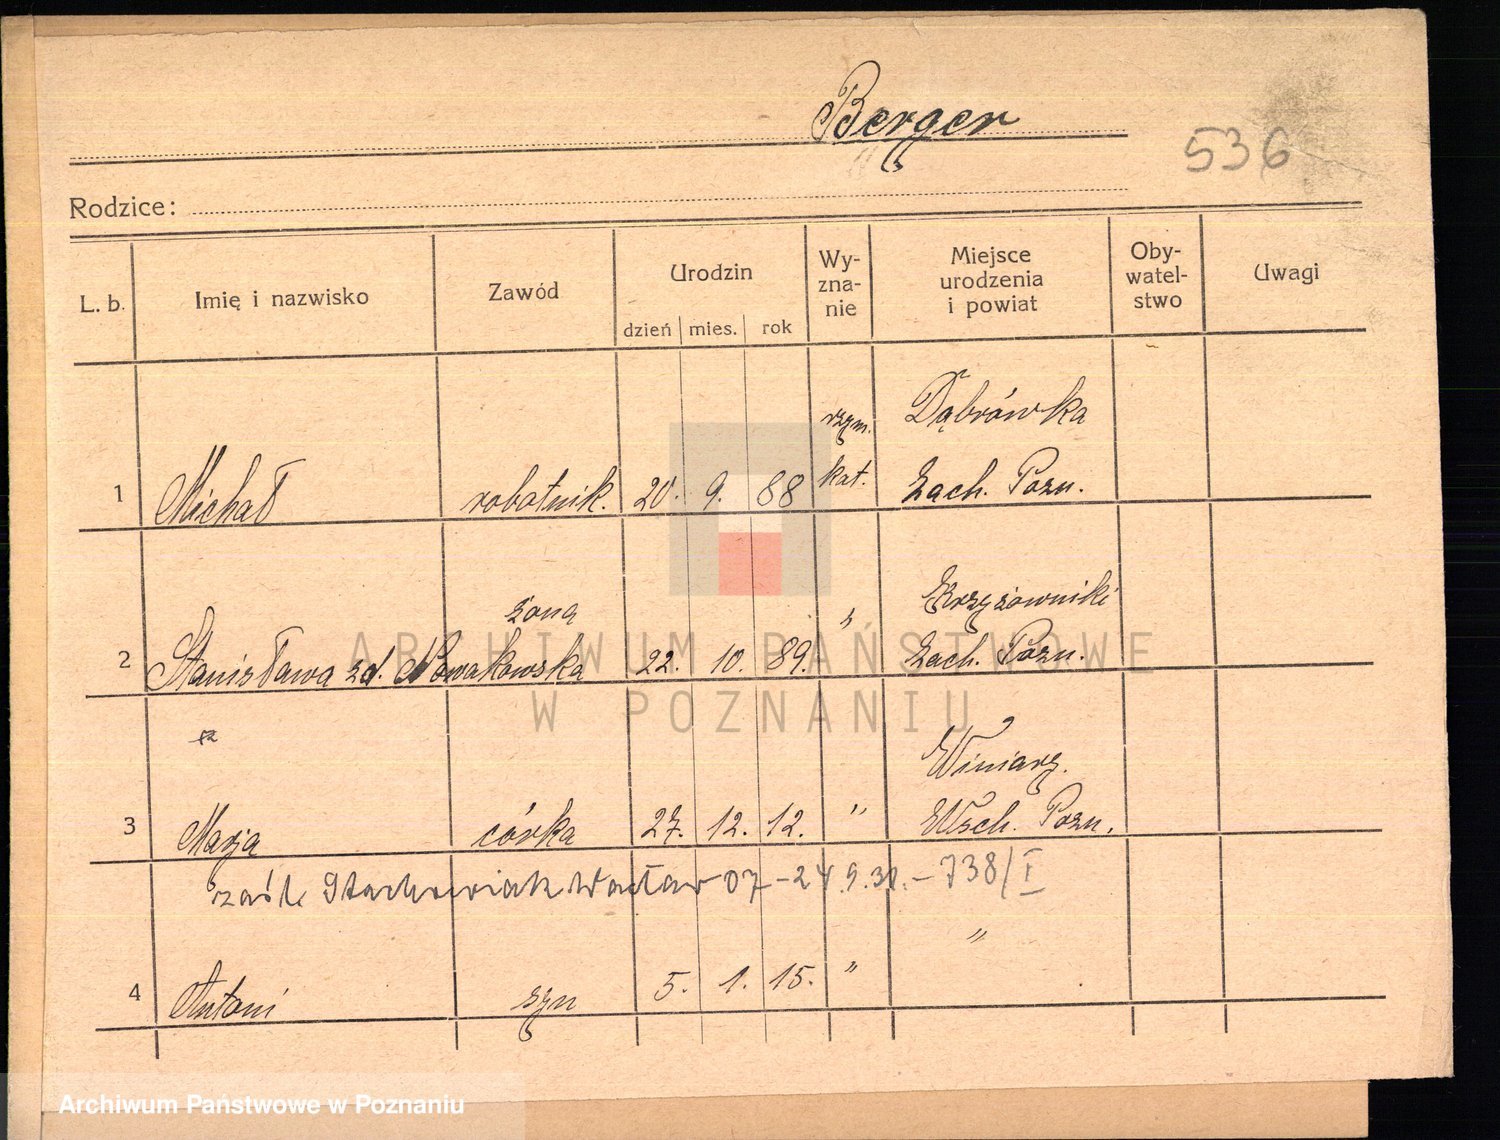 Berger
536
Rodzice:
L. b. Imię i nazwisko Zawód Urodzin dzień mies. rok Wy-zna-nie Miejsce urodzenia i powiat Oby-watel-stwo Uwagi
rzym. Dąbrówka
1 Michał robotnik. 20. 9. 88 kat. Zach. Pozn.
żona " Krzyżowniki
2 Stanisława zd. Nowakowska 22. 10. 89. Zach. Pozn.
Winiary.
3 Marja córka 27. 12. 12. " Wsch. Pozn.
zaśl. Stachowiak Wacław 07 - 24.9.31. - 738/I
"
4 Antoni syn 5. 1. 15. "
ARCHIWUM PAŃSTWOWE
W POZNANIU
Archiwum Państwowe w Poznaniu